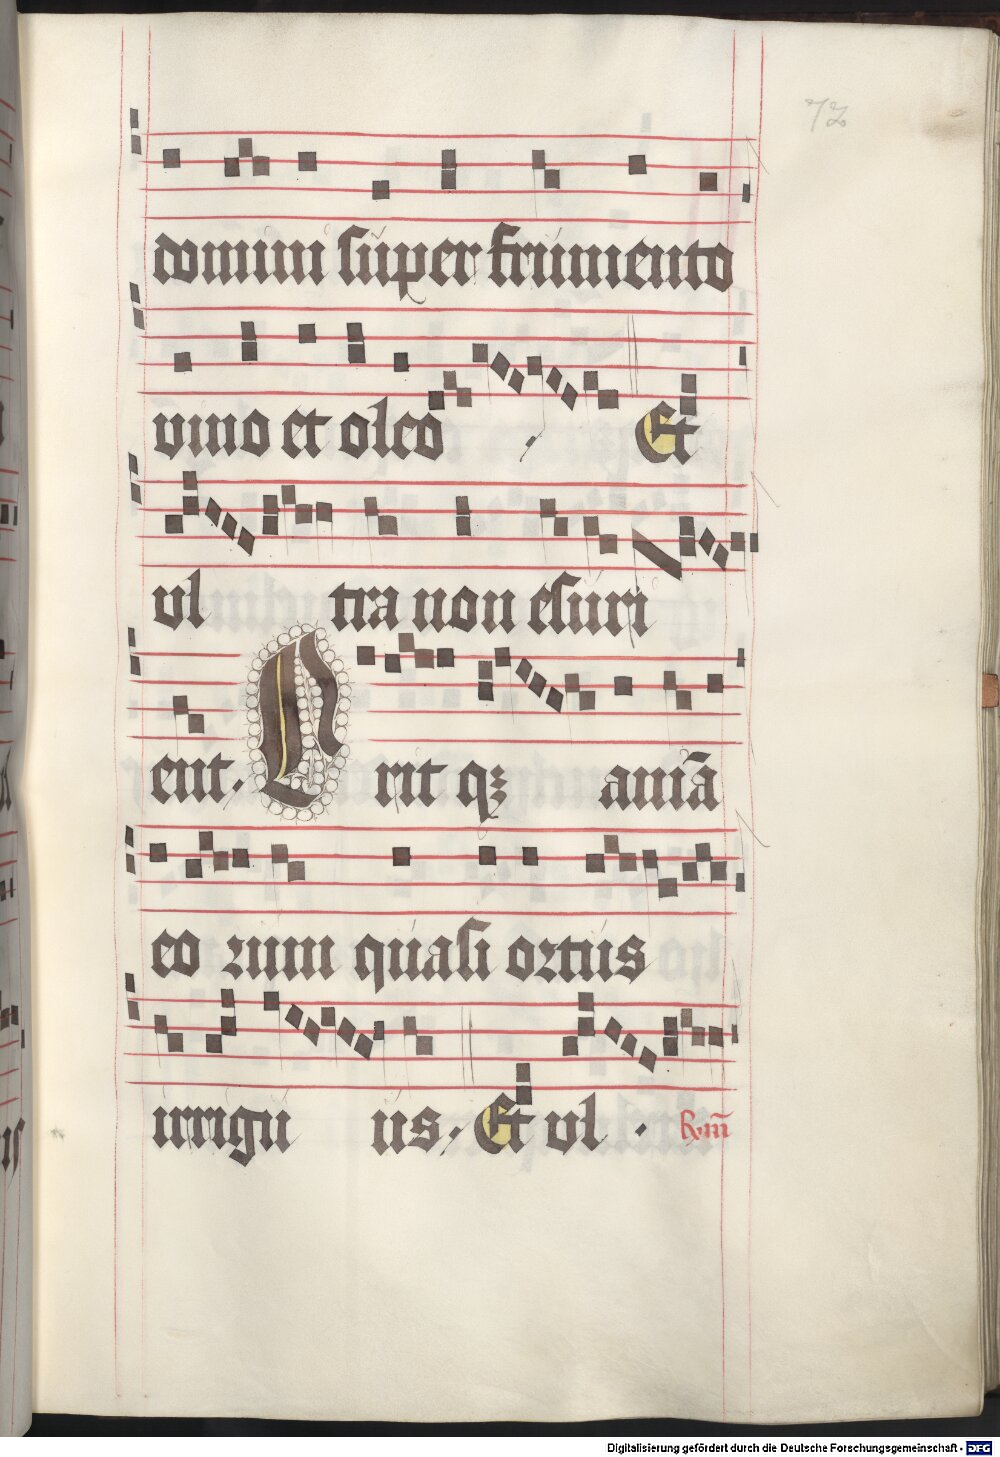 72
domini super frumento
vino et oleo Et
ul tra non esuri
ent. Erit qꝫ aniā
eo rum quasi ortus
irrigu us. Et ul . R. iii
Digitalisierung gefördert durch die Deutsche Forschungsgemeinschaft - DFG